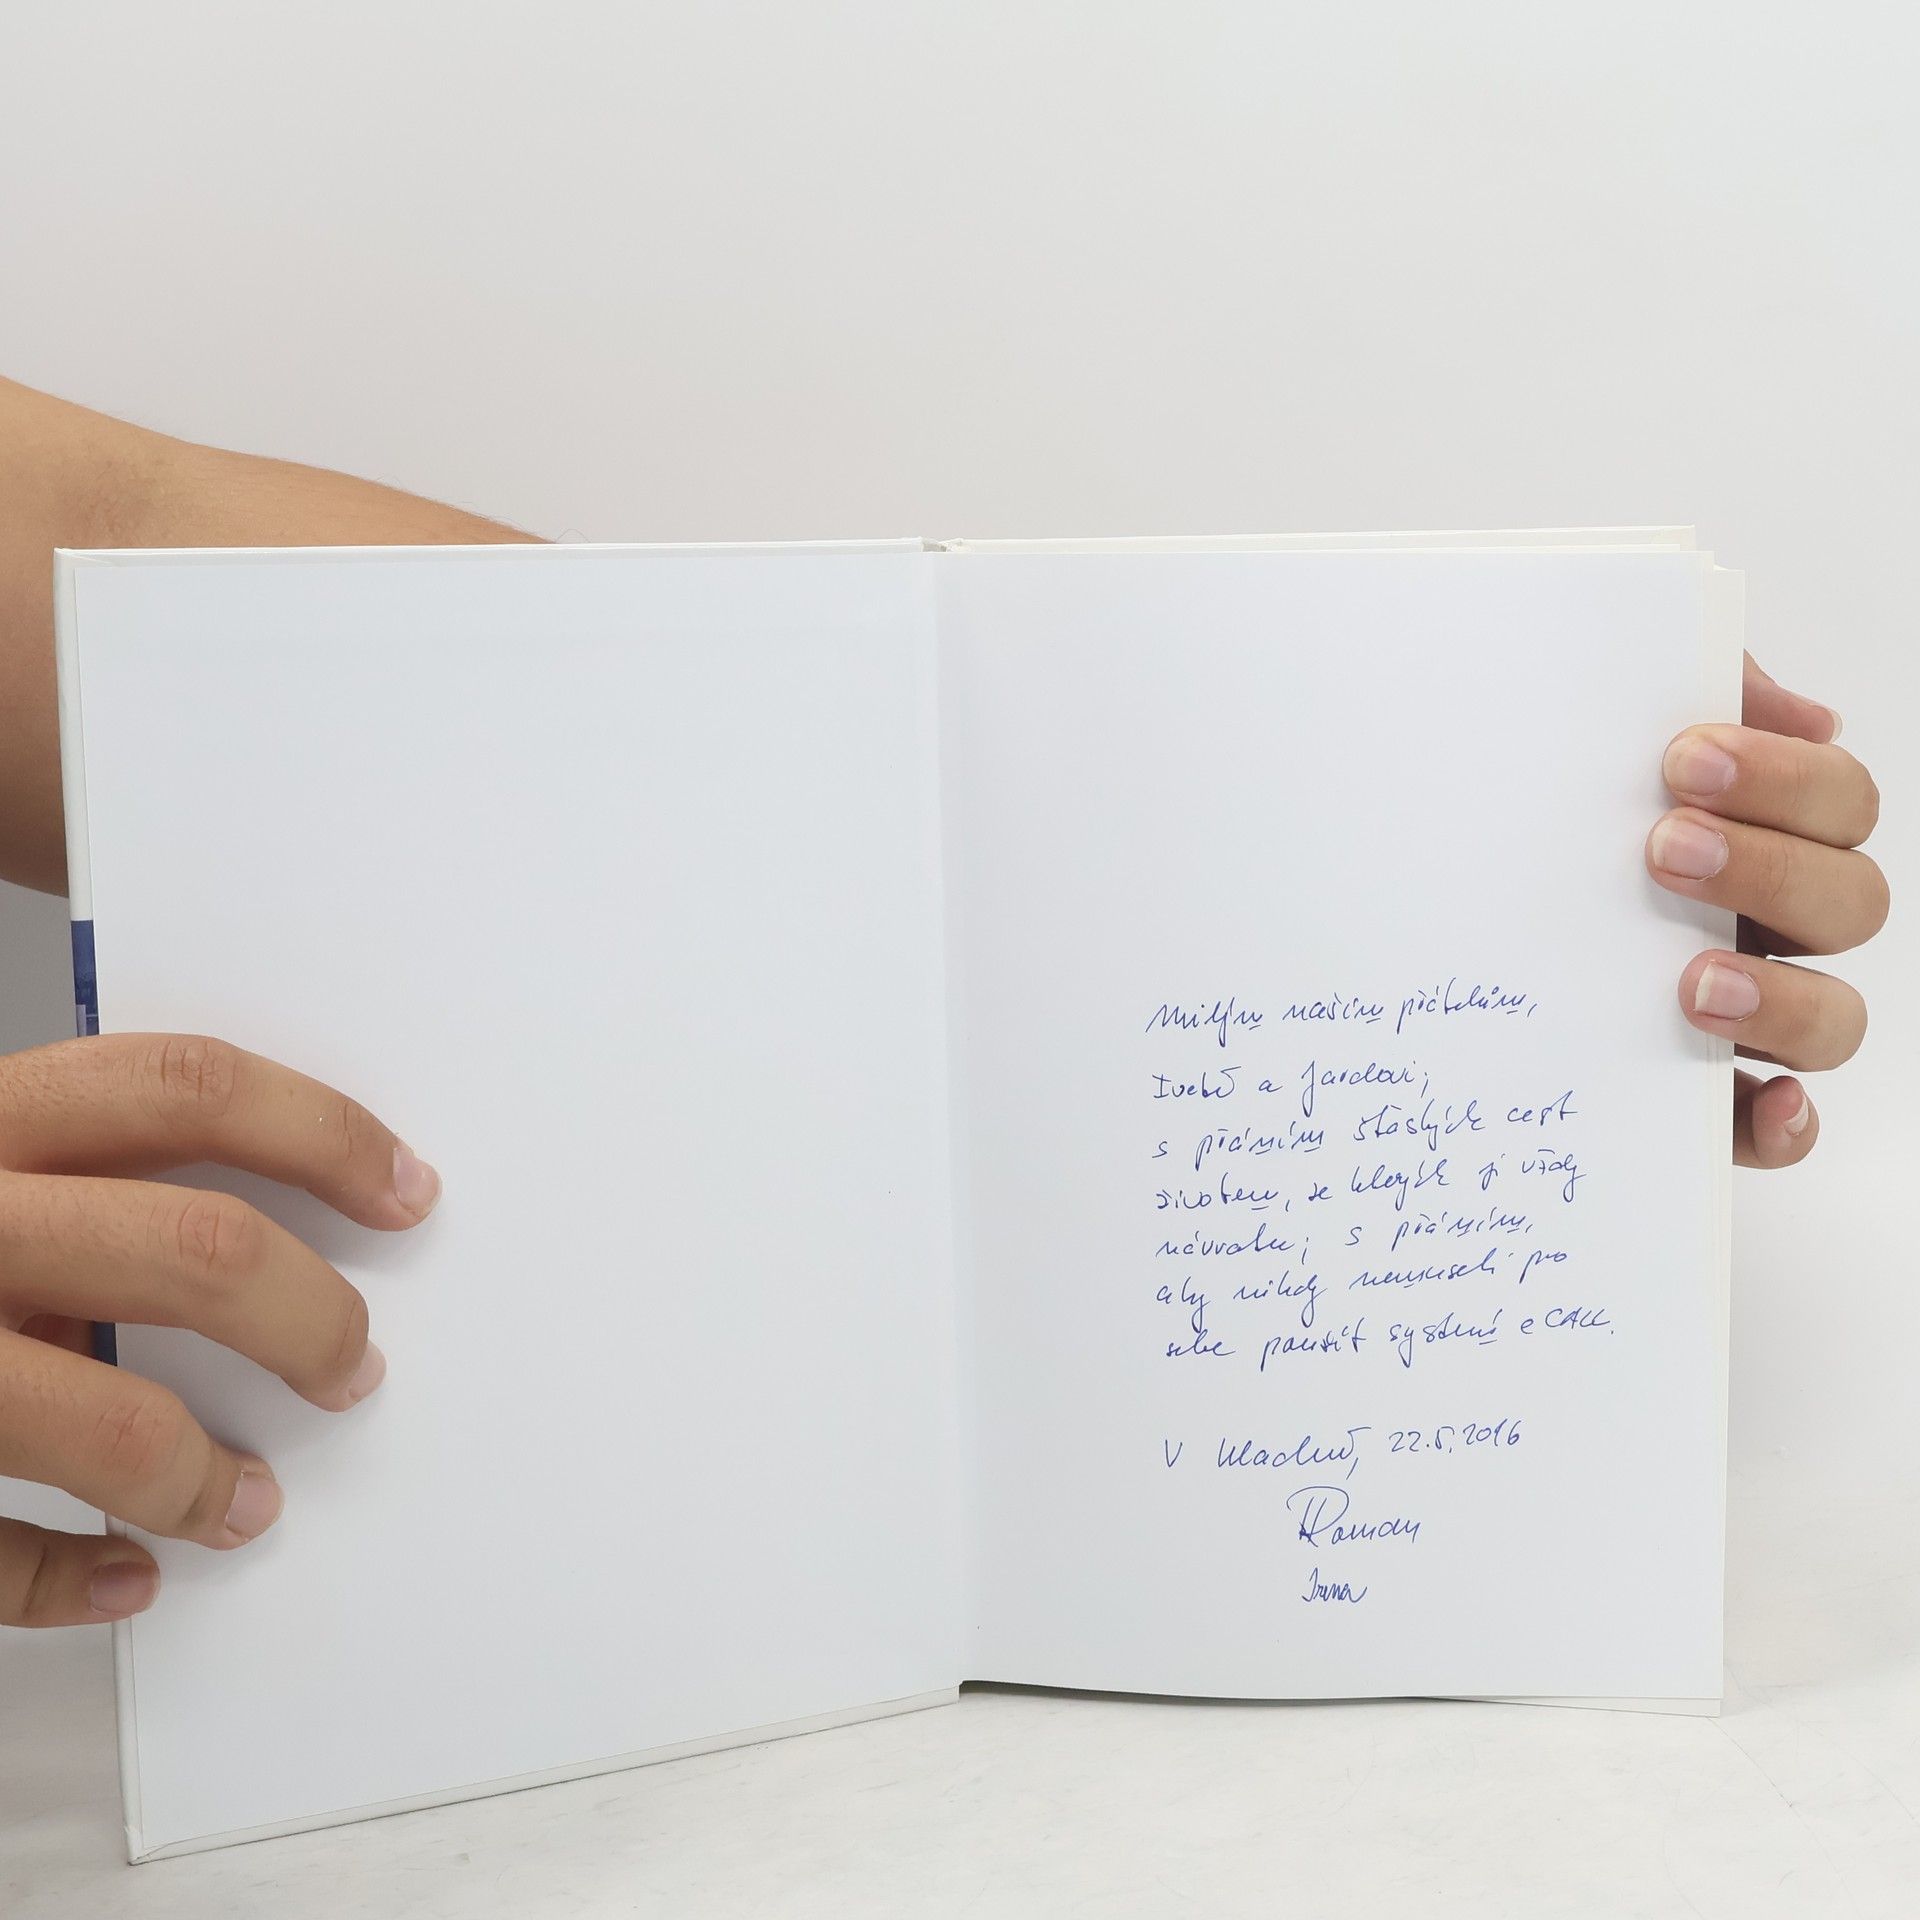 Milým našim přátelům,
Ivetě a Jardovi;
s přáním šťastných cest
životem, ze kterých je vždy
návratu; s přáním,
aby nikdy nemuseli pro
sebe použít systému eCALL.
V Kladně, 22.5.2016
Roman
Irena